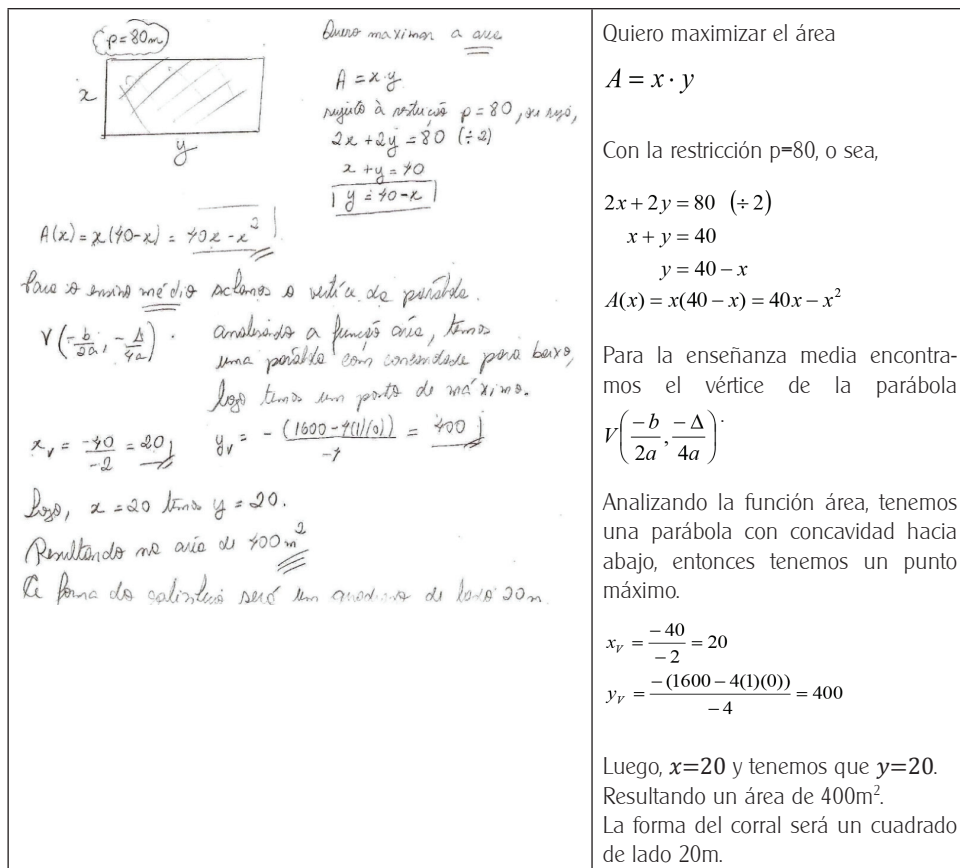 p=80m
x
y
Quero maximizar a área
A = x·y
sujeito à restrição p=80, ou seja,
2x + 2y = 80 (÷2)
x + y = 40
y = 40-x
A(x) = x(40-x) = 40x - x²
Para o ensino médio achamos o vértice da parábola.
V(-b/2a, -Δ/4a).
analisando a função área, temos
uma parábola com concavidade para baixo,
logo temos um ponto de máximo.
x_v = -40/-2 = 20
y_v = -(1600-4(1)(0))/-4 = 400
Logo, x=20 temos y=20.
Resultando na área de 400m²
forma do será um quadrado de lado 20m.
Quiero maximizar el área
A = x · y
Con la restricción p=80, o sea,
2x + 2y = 80 (÷ 2)
x + y = 40
y = 40 − x
A(x) = x(40 − x) = 40x − x²
Para la enseñanza media encontra-
mos el vértice de la parábola
V(−b/2a, −Δ/4a).
Analizando la función área, tenemos
una parábola con concavidad hacia
abajo, entonces tenemos un punto
máximo.
x_V = −40/−2 = 20
y_V = −(1600 − 4(1)(0))/−4 = 400
Luego, x=20 y tenemos que y=20.
Resultando un área de 400m².
La forma del corral será un cuadrado
de lado 20m.